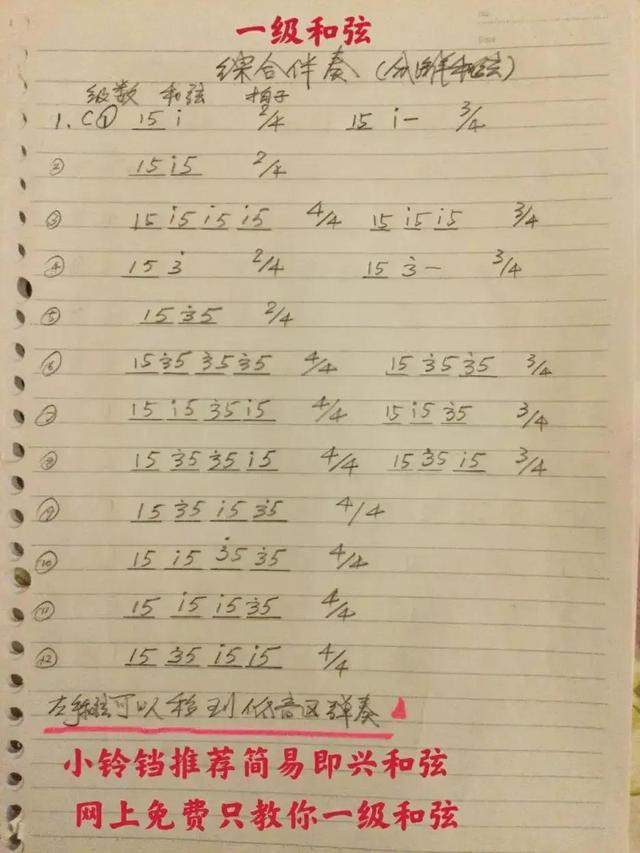 一级和弦
综合伴奏(分解和弦)
级数 和弦 拍子
1. C① 15 i 2/4 15 i- 3/4
② 15 i5 2/4
③ 15 i5 i5 i5 4/4 15 i5 i5 3/4
④ 15 3̇ 2/4 15 3̇- 3/4
⑤ 15 3̇5 2/4
⑥ 15 3̇5 3̇5 3̇5 4/4 15 3̇5 3̇5 3/4
⑦ 15 i5 3̇5 i5 4/4 15 i5 3̇5 3/4
⑧ 15 3̇5 3̇5 i5 4/4 15 3̇5 i5 3/4
⑨ 15 3̇5 i5 3̇5 4/4
⑩ 15 i5 3̇5 3̇5 4/4
⑪ 15 i5 i5 3̇5 4/4
⑫ 15 3̇5 i5 i5 4/4
左手和弦可以移到低音区弹奏
小铃铛推荐简易即兴和弦
网上免费只教你一级和弦